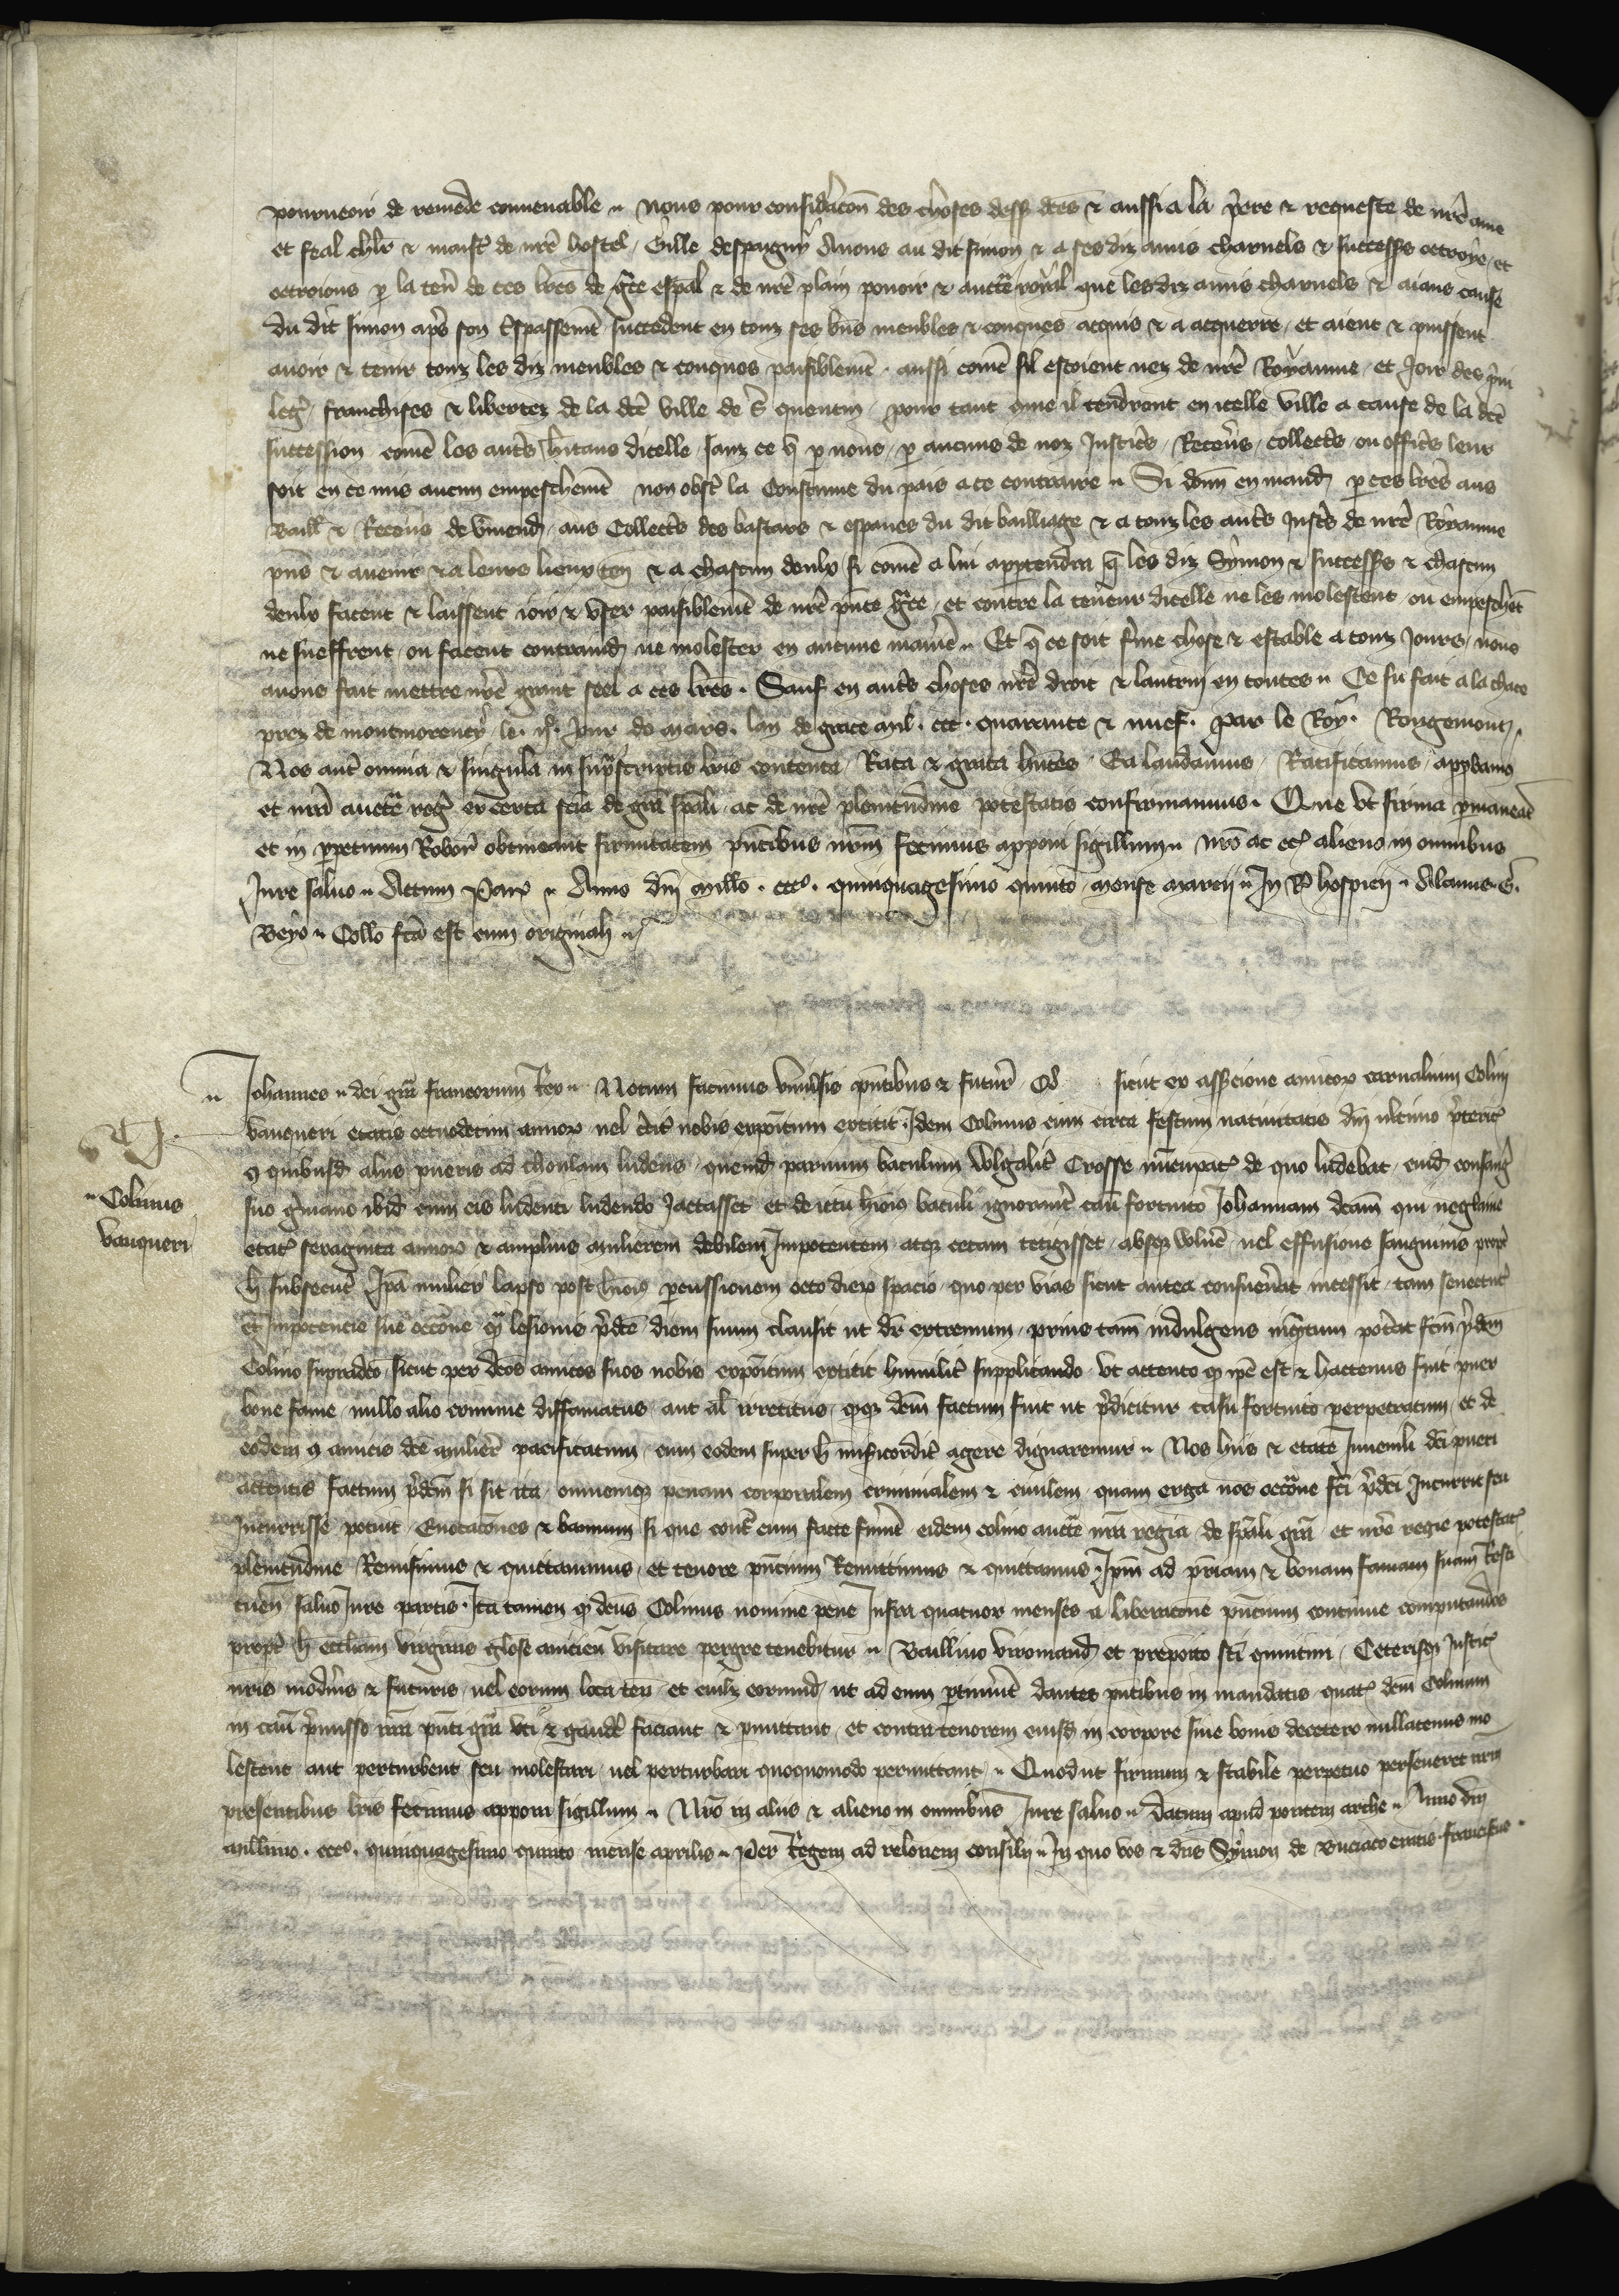 pourueoir de remede conuenable nous pour considãcon des choses dess dc̃es & aussi a la p̃ere & requeste de nr̃e ame
et feal chlr̃ & maist̃ de nr̃e hostel Gille despaigny Auons au dit simon & a ses diz amis charnels & successrs octroye et
octroions p la ten̄ de ces lr̃es de gr̃ce esp̃al & de nr̃e plain pouoir & aucte royal que les diz amis charnels & aians cause
du dit simon ap̃s son t̃spassemẽt succedent en touz ses bñs meubles & conques acquis & a acquerre et aient & puissent
auoir & tenir touz les diz meubles & conques paisiblemẽt aussi comẽ sil estoient nez de nr̃e Royaume et Joir des p̃ui
leg̃ franchises & libertez de la dc̃e ville de s̃ quentin pour tant que il tendront en icelle ville a cause de la dc̃e
succession comẽ les aut̃s hr̃itans dicelle sanz ce q̃ p nous p aucuns de noz Justic̃s Receu͂s collect̃s ou offic̃s leur
soit en ce mis aucun empeschemẽt non obst̃ la Coustume du pais a ce contraire Si dom̃ en mand̃ p ces lr̃es aus
Baill & Receu͂s de v̄mend̃ aus Collect̃s des bastars & espaues du dit bailliage & a touz les aut̃s Just̃s de nr̃e Royaume
p̃ns & auenir & a leurs lieux ten̄ & a chascun deulx si comẽ a lui appartendra q̃ les diz Symon & successrs & chascun
deulx facent & laissent ioir & vser paisiblemẽt de nr̃e p̃nte gr̃ce et contre la teneur dicelle ne les molestent ou empeschẽt
ne sueffrent ou facent contraind̃ ne molester en aucune manie͂ Et q̃ ce soit f̃me chose & estable a touz Jours nous
auons fait mettre nr̃e grant seel a ces lr̃es . Sauf en aut̃s choses nr̃e droit & lautrui en toutes Ce fu fait a la chace
prez de montmorency le . . Jour de mars . lan de grace mil . ccc . quarante & nuef . par le Roy . Rougemont
Nos aut̃ omnia & singula in sup̃scriptis lr̃is contenta Rata & grata hñtes Ea laudamus Ratificamus app̃bamus
et nr̃a aucte reg̃ ex certa scia de gr̃a sp̃ali ac de nr̃e plenitudine potestatis confirmamus . Que vt firma p̃maneat
et in p̃petuum Robor̃ obtineant firmitatem p̃ntibus nr̃m fecimus apponi sigillum nr̃o ac et alieno in omnibus
Jure saluo Actum Par̃ Anno dñi millo . ccco . quinquagesimo quinto mense marcii In R hospicii Alanus . G̃ .
Beyo Collo fcã est cum originali

Johannes dei gr̃a francorum Rex Notum facimus vniuersis p̃ntibus & futur̃ Qd sicut ex asser̃cione amicor carnalium Colini
vauqueri etatis octodecim annor vel circ̃ nobis expõitum extitit Idem Colinus cum circa festum natiuitatis dñi vltimo p̃terit̃
q quibusd̃ aliis pueris ad choulam ludens quemd̃ paruum baculum wlgalit̃ Crosse nũcupat̃ de quo ludebat cuid̃ consang̃
suo g̃mano ibid̃ cum eis ludenti ludendo Jactasset et de ictu hiõi baculi ignorant̃ casu fortuito Johannam dcãm 
etat̃ sexaginta annor & amplius mulierem debilem Impotentem atq cecam tetigisset absq vuln̄e uel effusione sanguinis propt̃
h̃ subsecut̃ Ip̃a mulier lapso post hiõi percussionem octo dier spacio quo per vias sicut antea consueu͂at incessit tam senectut̃
et inpotencie sue occõne q̃ lesionis p̃dc̃e diem suum clausit vt dr̃ extremum prius tam̃ indulgens inq̃ntum pote͂at fcm̃ p̃dcm̃
Colino supradc̃o sicut per dc̃os amicos suos nobis expõitum extitit humilit̃ supplicando vt attento q ip̃e est & hactenus fuit puer
bone fame nullo alio crimine diffamatus aut al irretitus q̃q dcm̃ factum fuit vt p̃dicitur casu fortuito perpetratum et de
eodem q amicis dc̃e mulier̃ pacificatum cum eodem super h̃ mis̃icordit̃ agere dignaremur Nos hiis & etate Juuenili dc̃i pueri
attentis factum p̃dcm̃ si sit ita omnemq̃ penam corporalem criminalem & ciuilem quam erga nos occõne fc̃i p̃dc̃i Jncurrit seu
Jncurrisse potuit Euocacões & bannum si que cont̃ eum facte fueĩnt eidem colino aucte nr̃a regia de sp̃ali gr̃a et nr̃e regie potestat̃
plenitudine Remisimus & quittauimus et tenore p̃ncium Remittimus & quittamus Ip̃m ad p̃riam & bonam famam suam Resti
tuen̄ saluo Jure partis . Ita tamen q dc̃us Colinus nomine pene Infra quatuor menses a liberacione p̃ncium continue computandos
propt̃ h̃ eccliam virginis gl̃ose anicien̄ visitare peregre tenebitur Bailliuo viromand̃ et preposito sc̃i quintini Ceterisq̃ Justic̃
nr̃is mode͂nis & futuris uel eorum loca ten̄ et cuil͂z eorumd̃ vt ad eum p̃tinuẽt dantes p̃ntibus in mandatis quat̃ dcm̃ Colinum
in casu p̃misso nr̃a p̃nti gr̃a vti & gaud̃e faciant & p̃mittant et contra tenorem eiusd̃ in corpore siue bonis decetero nullatenus mo
lestent aut perturbent seu molestari uel perturbari quoquomodo permittant Quod vt firmum & stabile perpetuo perseueret nr̃m
presentibus lr̃is fecimus apponi sigillum Nr̃o in aliis & alieno in omnibus Jure saluo Datum apud pontem arche Anno dñi
millimo . ccco . quinquagesimo quinto mense aprilis Per Regem ad relonem consilij In quo vos & dñs Symon de Buciaco eratis . franciscus .

Colinus
vauqueri